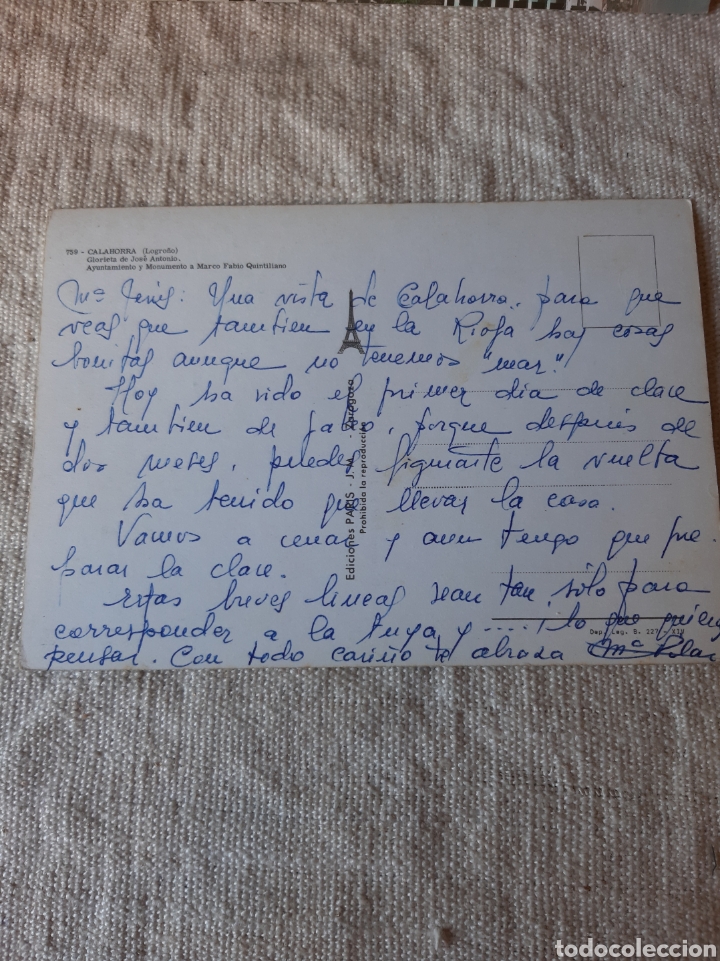 759 - CALAHORRA (Logroño)
Glorieta de José Antonio.
Ayuntamiento y Monumento a Marco Fabio Quintiliano
Mª Jesús: Una vista de Calahorra, para que
veas que tambien en la Rioja hay cosas
bonitas aunque no tenemos "mar."
Hoy ha sido el primer dia de clase
y tambien de jaleo, porque después de
dos meses, puedes figurarte la vuelta
que ha tenido que llevar la casa.
Vamos a cenar y aun tengo que pre-
parar la clase.
Estas breves lineas sean tan sólo para
corresponder a la tuya y ....¡lo que quieras
pensar. Con todo cariño te abraza Mª Pilar
Ediciones PARIS - J.M. - Zaragoza
Prohibida la reproducción
Dep. Leg. B. 227
todocoleccion